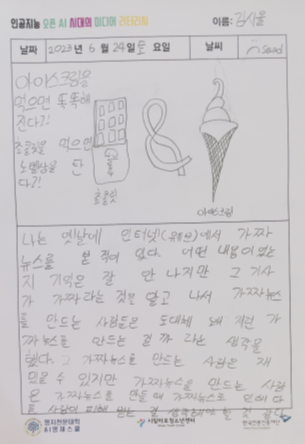 인공지능 오픈 AI 시대의 미디어 리터러시
이름: 김시율
날짜 2023년 6월 24일 토요일 날씨
아이스크림을
먹으면 똑똑해
진다?!
초콜릿을 먹으면
노벨상을 탄
다?!
초콜릿
아이스크림
나는 옛날에 인터넷(유튜브)에서 가짜
뉴스를 본 적이 있다. 어떤 내용이었는
지 기억은 잘 안 나지만 그 기사
가 가짜라는 것을 알고 나서 가짜뉴스
를 만드는 사람들은 도대체 왜 저런 가
짜 뉴스를 만드는 걸까 라는 생각을
했다. 가짜뉴스를 만드는 사람은 재
밌을 수 있지만 가짜뉴스를 만드는 사람
은 가짜뉴스로 인해 다
른 사람이 피해 받는 걸 생각해야 할 것 같다
명지전문대학
AI영재스쿨
시립마포청소년센터
한국언론진흥재단